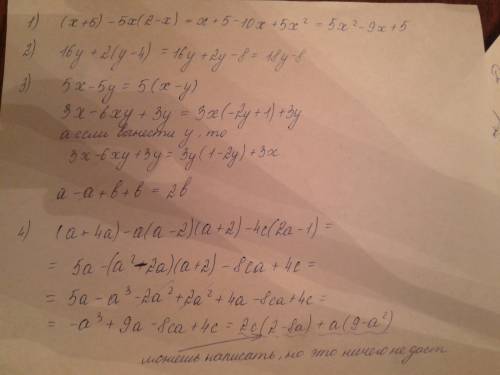 1) (x+5) - 5x(2-x) = x+5-10x+5x² = 5x²-9x+5
2) 16y+2(y-4) = 16y+2y-8 = 18y-8
3) 5x-5y = 5(x-y)
3x-6xy+3y = 3x(-2y+1)+3y
а если вынести y, то
3x-6xy+3y = 3y(1-2y)+3x
a-a+b+b = 2b
4) (a+4a)-a(a-2)(a+2)-4c(2a-1) =
= 5a-(a²-2a)(a+2)-8ca+4c =
= 5a-a³-2a²+2a²+4a-8ca+4c =
= -a³+9a-8ca+4c = 2c(2-8a)+a(9-a²)
можешь написать, но это ничего не даст